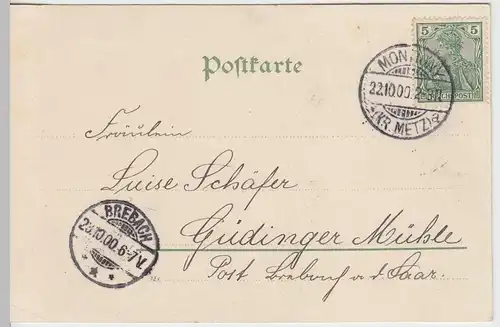 5 5
REICHSPOST
Postkarte
22.10.00
(KR. METZ) a
Fräulein
Luise Schäfer
Güdinger Mühle
Post Brebach a. d. Saar.
BREBACH
23.10.00. 6-7 V.